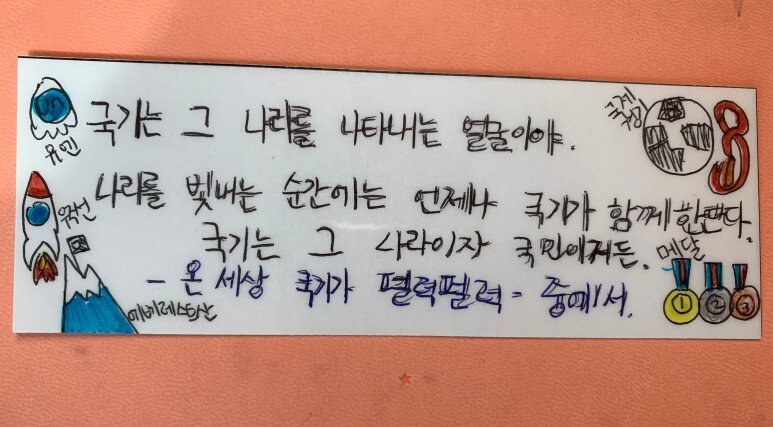 국기는 그 나라를 나타내는 얼굴이야.
나라를 빛내는 순간에는 언제나 국기가 함께 한단다.
국기는 그 나라이자 국민이거든.
- 온 세상 국기가 펄럭펄럭 - 중에서.
UN
유엔
우주선
에베레스트산
국제
메달
1
2
3